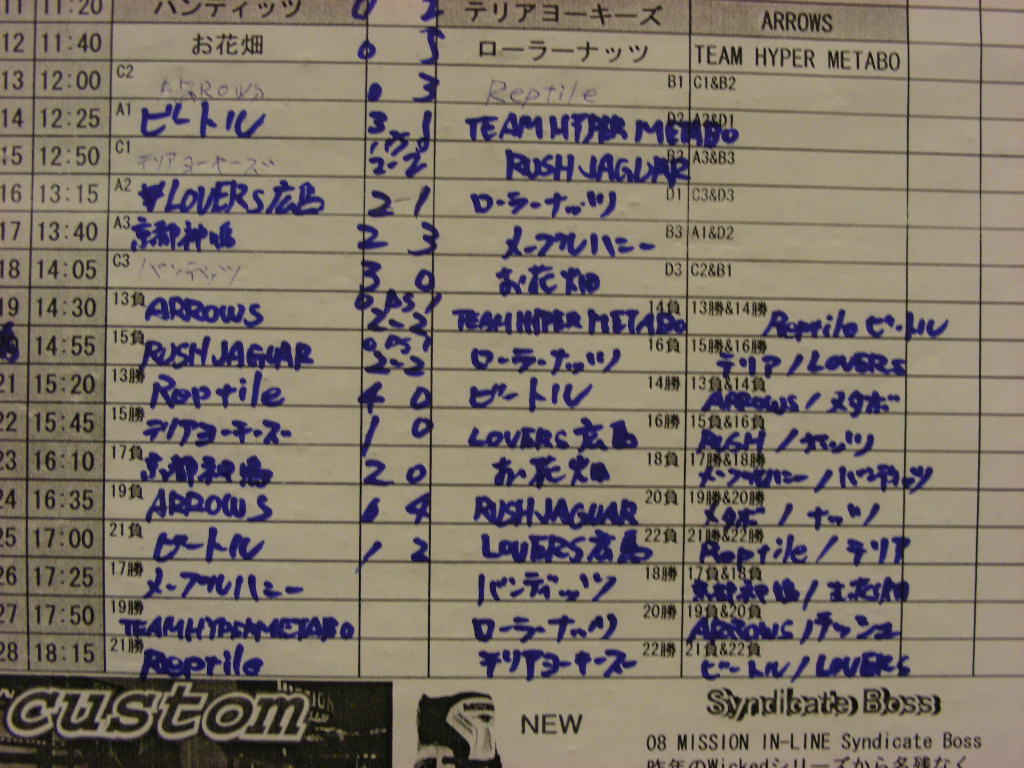 11 11:20 バンディッツ 0 2 テリアヨーキーズ ARROWS
12 11:40 お花畑 0 5 ローラーナッツ TEAM HYPER METABO
13 12:00 C2 ARROWS 0 3 Reptile B1 C1&B2
14 12:25 A1 ビートル 3 1 TEAM HYPER METABO D2 A2&D1
15 12:50 C1 テリアヨーキーズ 1 PS 0 2-2 RUSH JAGUAR B2 A3&B3
16 13:15 A2 LOVERS広島 2-1 ローラーナッツ D1 C3&D3
17 13:40 A3 京都神鳴 2 3 メープルハニー B3 A1&D2
18 14:05 C3 バンディッツ 3 0 お花畑 D3 C2&B1
19 14:30 13負 ARROWS 0 PS 1 2-2 TEAM HYPER METABO 14負 13勝&14勝 Reptile ビートル
14:55 15負 RUSH JAGUAR 0 PS 1 2-2 ローラーナッツ 16負 15勝&16勝 テリア/LOVERS
21 15:20 13勝 Reptile 4 0 ビートル 14勝 13負&14負 ARROWS/メタボ
22 15:45 15勝 テリアヨーキーズ 1 0 LOVERS広島 16勝 15負&16負 RUSH/ナッツ
23 16:10 17負 京都神鳴 2 0 お花畑 18負 17勝&18勝 メープルハニー/バンディッツ
24 16:35 19負 ARROWS 1 4 RUSH JAGUAR 20負 19勝&20勝 メタボ/ナッツ
25 17:00 21負 ビートル 1 2 LOVERS広島 22負 21勝&22勝 Reptile/テリア
26 17:25 17勝 メープルハニー バンディッツ 18勝 17負&18負 京都神鳴/お花畑
27 17:50 19勝 TEAM HYPER METABO ローラーナッツ 20勝 19負&20負 ARROWS/ラッシュ
28 18:15 21勝 Reptile テリアヨーキーズ 22勝 21負&22負 ビートル/LOVERS
custom
NEW
Syndicate Boss
08 MISSION IN-LINE Syndicate Boss
昨年のWickedシリーズから名残なく